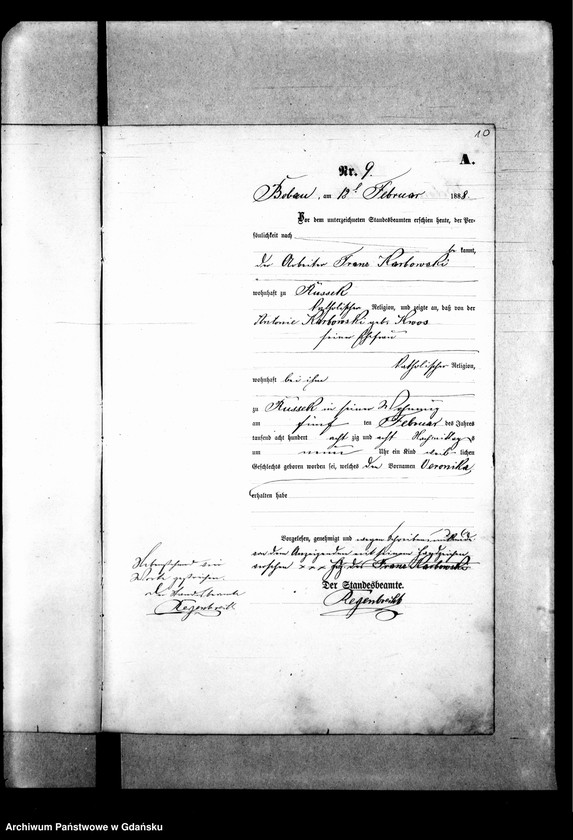 10
A.
Nr. 9.
Bobau, am 13t Februar 1888.
Vor dem unterzeichneten Standesbeamten erschien heute, der Per-
sönlichkeit nach
be kannt,
der Arbeiter Franz Karbowski
wohnhaft zu Russek
katholischer Religion, und zeigte an, daß von der
Antonie Karbowski geb. Kroos
seiner Ehefrau
katholischer Religion,
wohnhaft bei ihm
zu Russek in seiner Wohnung
am fünf ten Februar des Jahres
tausend acht hundert acht zig und acht Nachmittags
um neun Uhr ein Kind weib lichen
Geschlechts geboren worden sei, welches den Vornamen Veronika
erhalten habe
Vorgelesen, genehmigt und wegen Schreibensunkunde
von dem Anzeigenden mit seinem Handzeichen
versehen x x x Hz des Franz Karbowski
Der Standesbeamte.
Regenbrecht
Nebenstehend ein
Wort gestrichen.
Der Standesbeamte
Regenbrecht
Archiwum Państwowe w Gdańsku